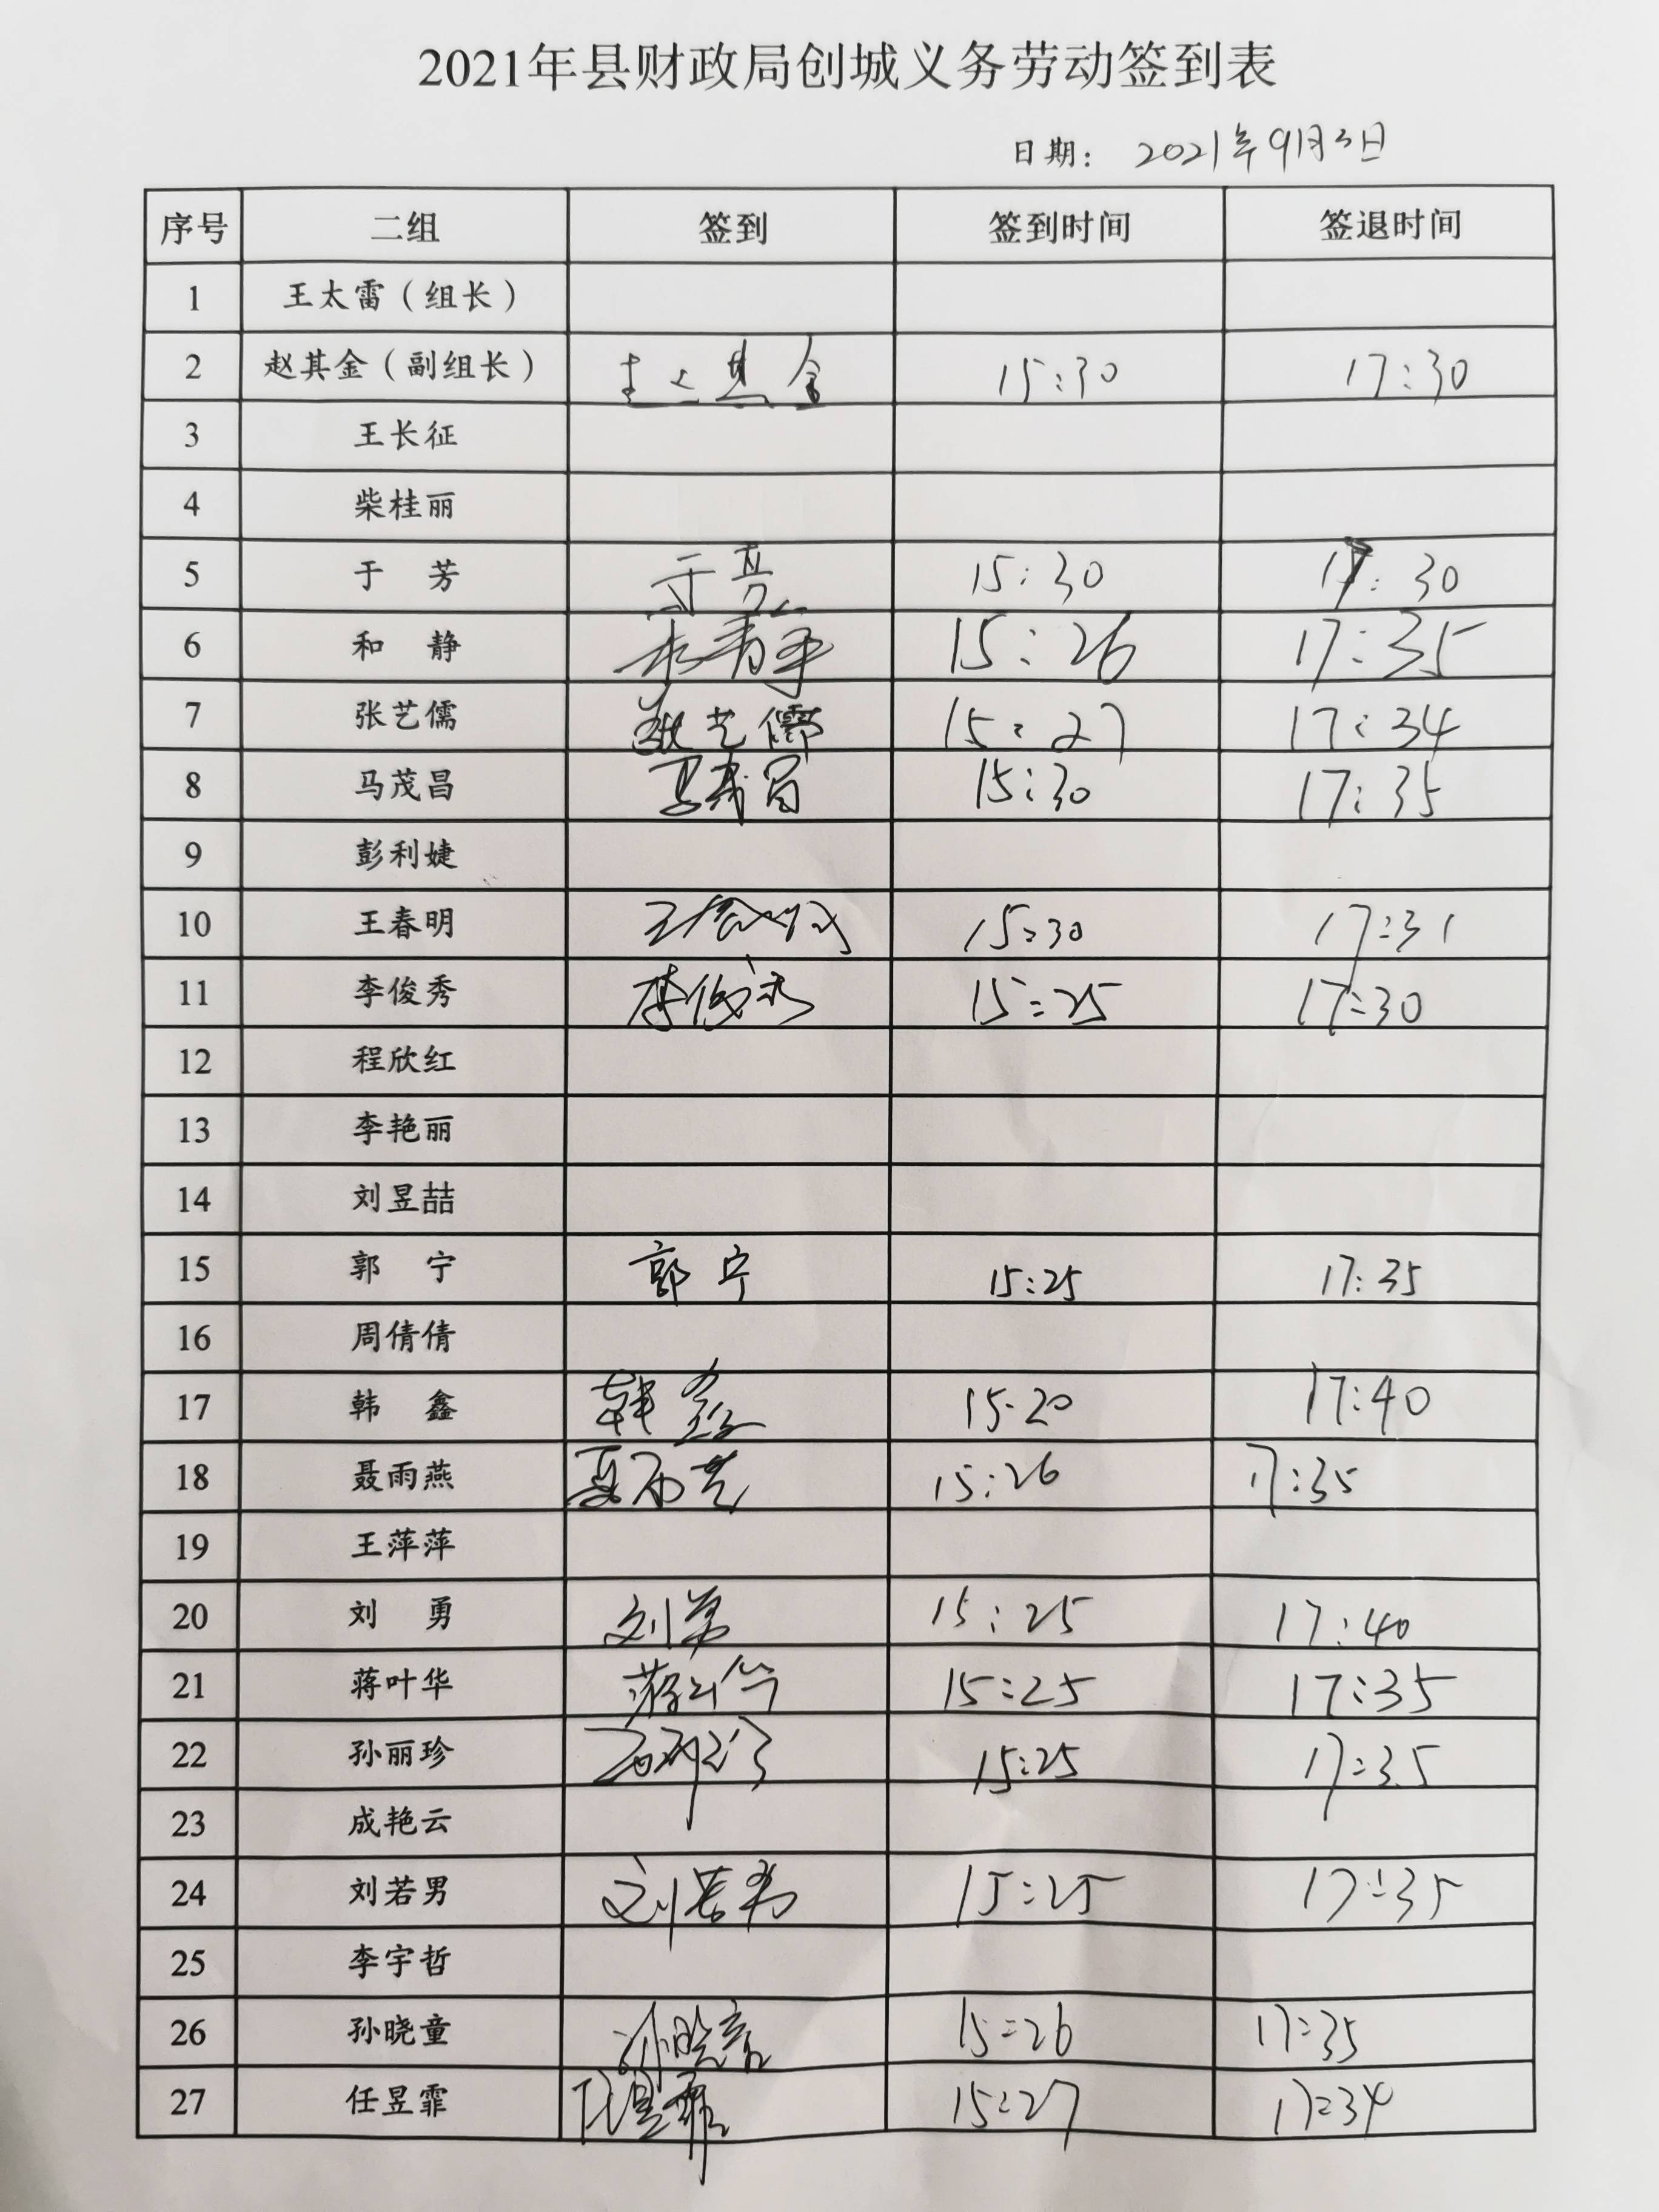 2021年县财政局创城义务劳动签到表
日期： 2021年9月3日
序号 二组 签到 签到时间 签退时间
1 王太雷（组长）
2 赵其金（副组长） 赵其金 15:30 17:30
3 王长征
4 柴桂丽
5 于 芳 于芳 15:30 17:30
6 和 静 和静 15:26 17:35
7 张艺儒 张艺儒 15:27 17:34
8 马茂昌 马茂昌 15:30 17:35
9 彭利婕
10 王春明 王春明 15:30 17:31
11 李俊秀 李俊秀 15:25 17:30
12 程欣红
13 李艳丽
14 刘昱喆
15 郭 宁 郭宁 15:25 17:35
16 周倩倩
17 韩 鑫 韩鑫 15:20 17:40
18 聂雨燕 聂雨燕 15:26 17:35
19 王萍萍
20 刘 勇 刘勇 15:25 17:40
21 蒋叶华 蒋叶华 15:25 17:35
22 孙丽珍 孙丽珍 15:25 17:35
23 成艳云
24 刘若男 刘若男 15:25 17:35
25 李宇哲
26 孙晓童 孙晓童 15:26 17:35
27 任昱霏 任昱霏 15:27 17:34